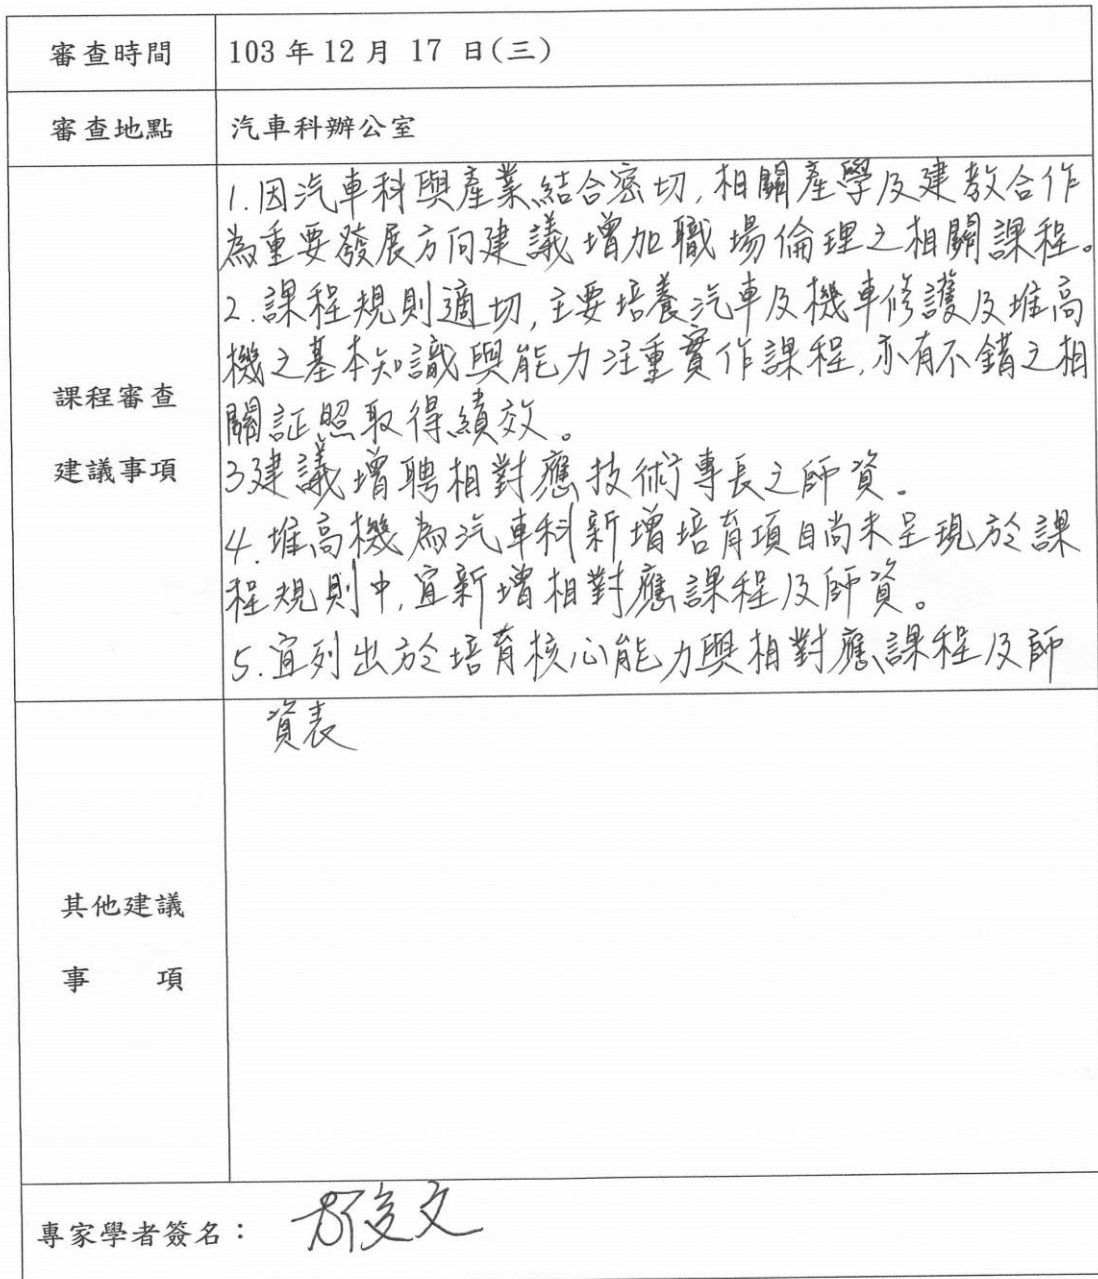 審查時間 103 年 12 月 17 日(三)
審查地點 汽車科辦公室
課程審查
建議事項
1.因汽車科與產業結合密切,相關產學及建教合作
為重要發展方向建議增加職場倫理之相關課程。
2.課程規則適切,主要培養汽車及機車修護及堆高
機之基本知識與能力注重實作課程,亦有不錯之相
關証照取得績效。
3建議增聘相對應技術專長之師資。
4.堆高機為汽車科新增培育項目尚未呈現於課
程規則中,宜新增相對應課程及師資。
5.宜列出於培育核心能力與相對應課程及師
資表
其他建議
事 項
專家學者簽名: